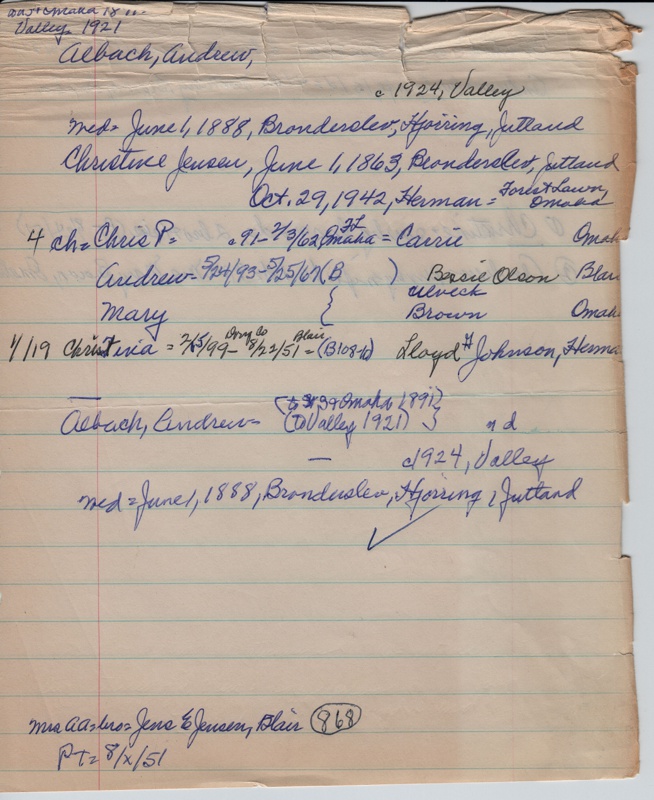 Omaha 18
Valley 1921
Aebach, Andrew,
c 1924, Valley
med= June 1, 1888, Bronderslev, Hjorring, Jutland
Christine Jensen, June 1, 1863, Bronderslev, Jutland
Oct. 29, 1942, Herman = Forest Lawn, Omaha
4 ch = Chris P = c 91 - 2/3/62 Omaha = FL Carrie Omah
Andrew = 5/24/93 - 5/25/67 (B ) Bessie Olson Blair
Mary { Ulveck
Brown Omaha
4/19 Christinia = 2/5/99 - Doug Co 8/22/51 = Blair (B108-16) Lloyd H Johnson, Herma
Aebach, Andrew = (to Omaha 1891)
(to Valley 1921) } nd
— c1924, Valley
med = June 1, 1888, Bronderslev, Hjorring, Jutland
✓
Mrs AA = bro = Jens E Jensen, Blair 868
PT = 8/x/51